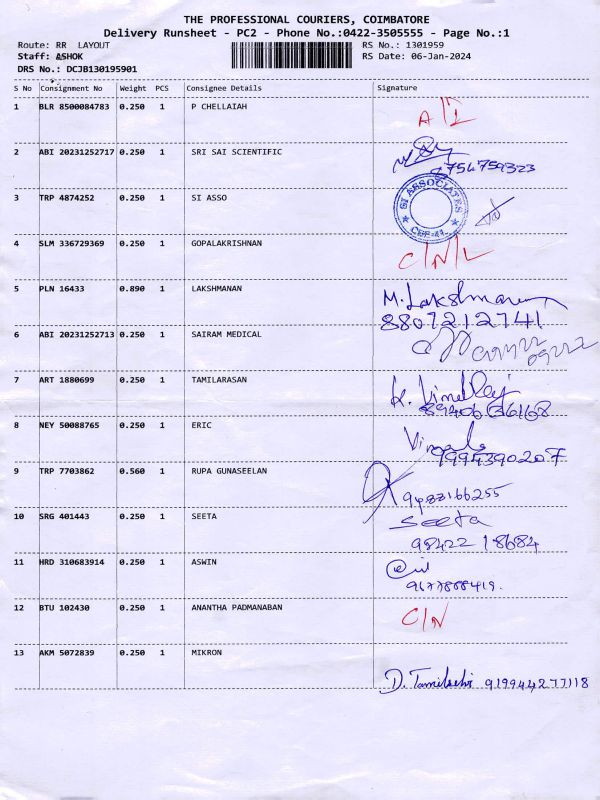 THE PROFESSIONAL COURIERS, COIMBATORE
Delivery Runsheet - PC2 - Phone No.:0422-3505555 - Page No.:1
Route: RR LAYOUT RS No.: 1301959
Staff: ASHOK RS Date: 06-Jan-2024
DRS No.: DCJB130195901
S No Consignment No Weight PCS Consignee Details Signature
1 BLR 8500084783 0.250 1 P CHELLAIAH
2 ABI 20231252717 0.250 1 SRI SAI SCIENTIFIC
9754759323
3 TRP 4874252 0.250 1 SI ASSO
SI ASSOCIATES
4 SLM 336729369 0.250 1 GOPALAKRISHNAN C/N/L
5 PLN 16433 0.890 1 LAKSHMANAN M. Lakshmanan
8807212741
6 ABI 20231252713 0.250 1 SAIRAM MEDICAL
7 ART 1880699 0.250 1 TAMILARASAN
8 NEY 50088765 0.250 1 ERIC
9994390207
9 TRP 7703862 0.560 1 RUPA GUNASEELAN
9483166255
10 SRG 401443 0.250 1 SEETA Seeta
98422 18684
11 HRD 310683914 0.250 1 ASWIN
9677868419.
12 BTU 102430 0.250 1 ANANTHA PADMANABAN C/N
13 AKM 5072839 0.250 1 MIKRON
D. Tamilselvi 919944277118